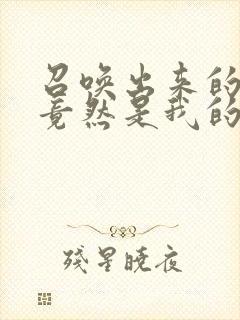 召唤出来的
竟然是我的
残星晓夜